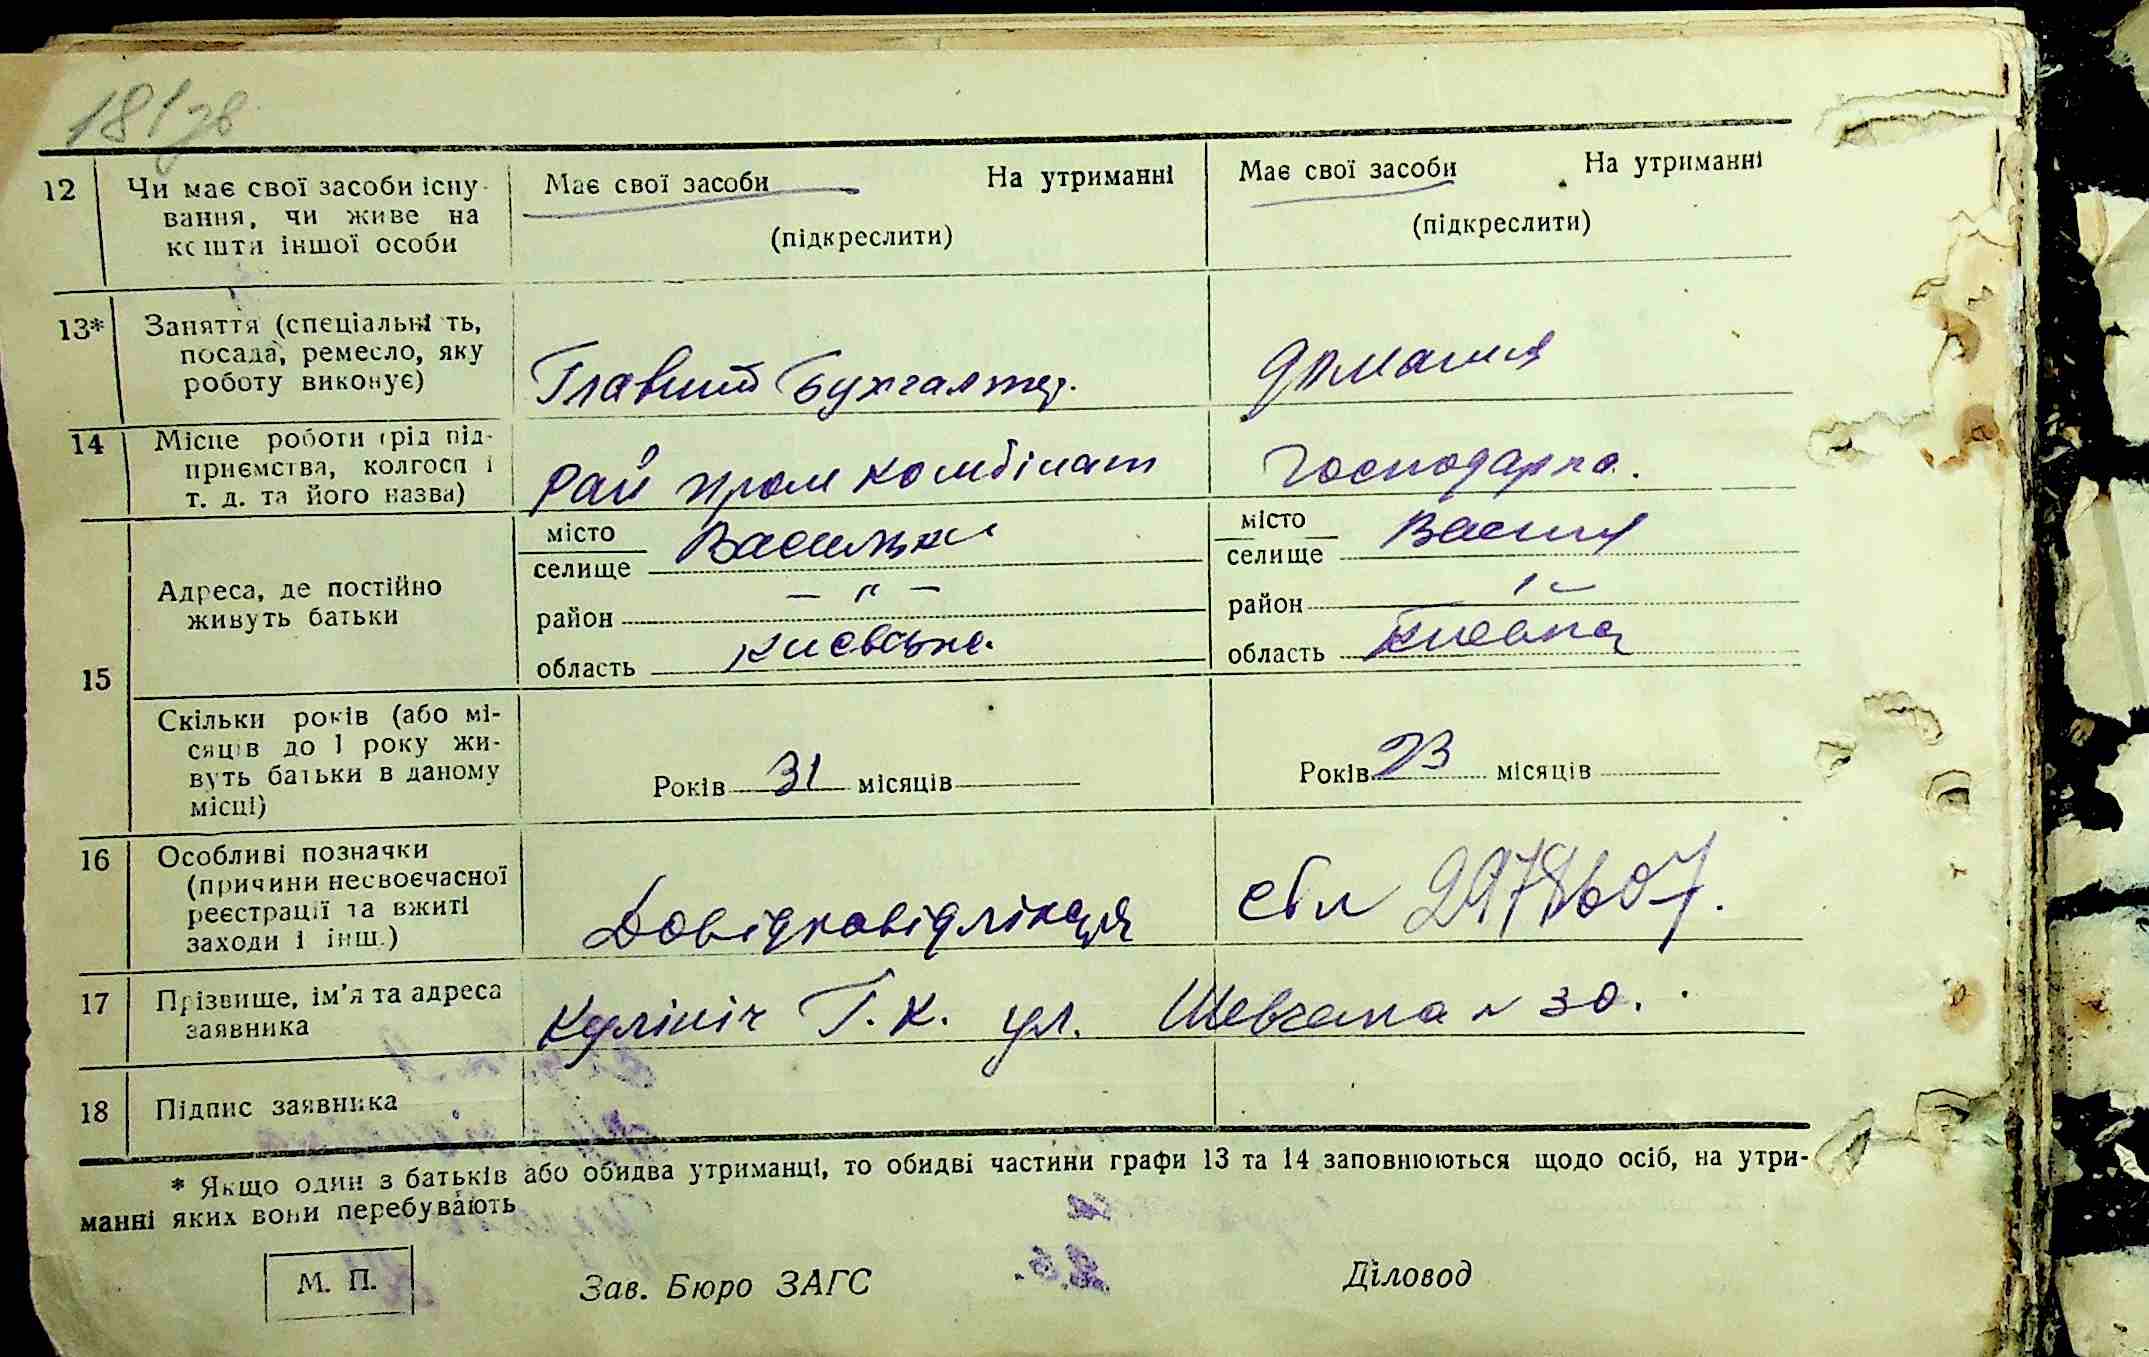 181зв
12 Чи має свої засоби існу- Має свої засоби На утриманні Має свої засоби На утриманні
вання, чи живе на
кошти іншої особи (підкреслити) (підкреслити)
13* Заняття (спеціальні ть,
посада, ремесло, яку
роботу виконує) Главний Бухгалтер. домашня
14 Місце роботи (рід під-
приємства, колгосп і
т. д. та його назва) Рай пром комбінат господарка.
15 Адреса, де постійно
живуть батьки
місто Васильков місто
селище селище
район — „ — район
область Києвська. область
Скільки років (або мі-
сяців до 1 року жи-
вуть батьки в даному
місці)
Років 31 місяців Років 23 місяців
16 Особливі позначки
(причини несвоєчасної
реєстрації та вжиті
заходи і інш.) Довідка відлікаря
17 Прізвище, ім'я та адреса
заявника Кулініч Г. К. ул. Шевченка № 30.
18 Підпис заявника
* Якщо один з батьків або обидва утриманці, то обидві частини графи 13 та 14 заповнюються щодо осіб, на утри-
манні яких вони перебувають
М. П. Зав. Бюро ЗАГС Діловод